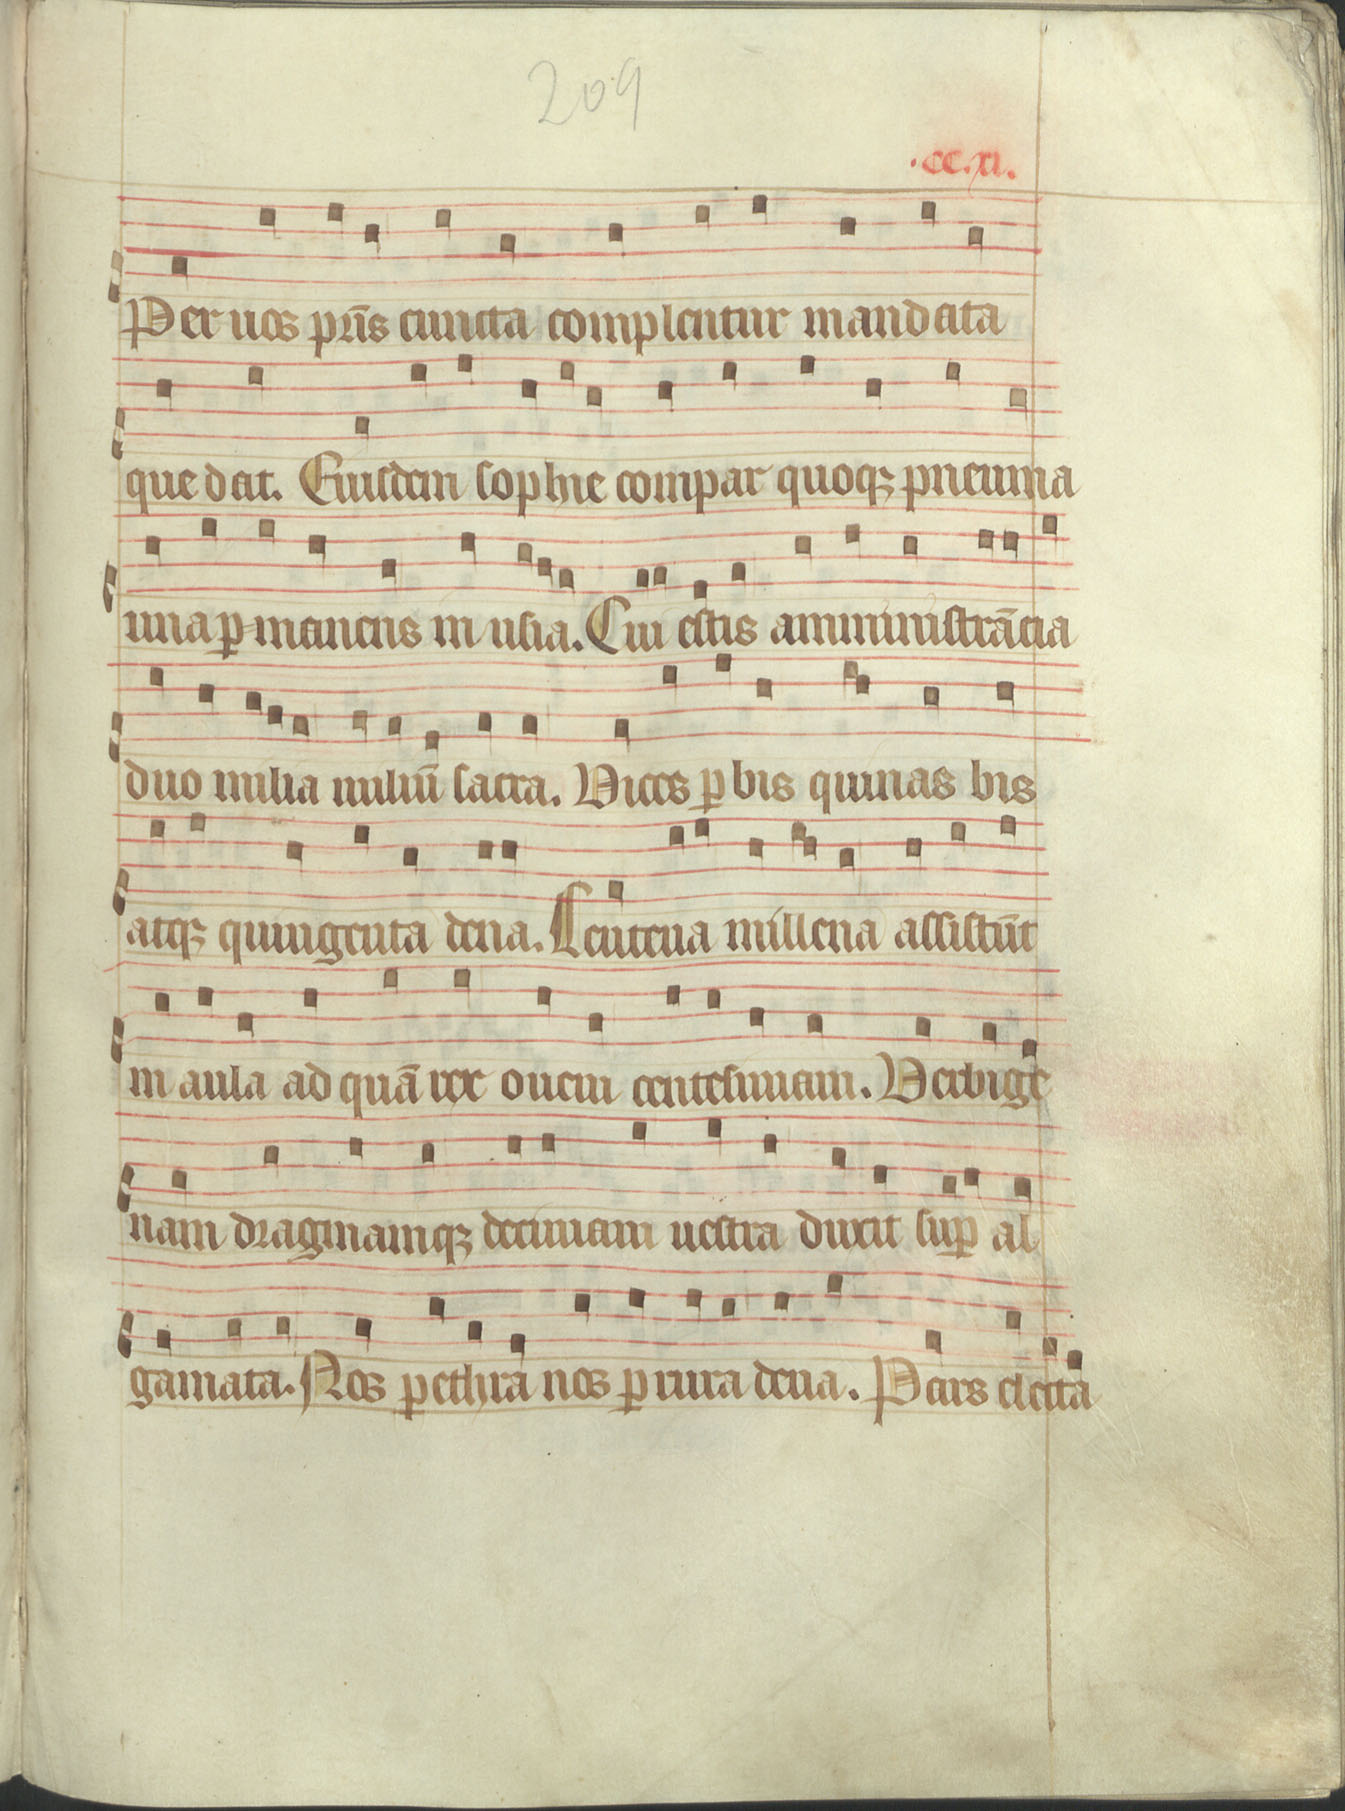 209
.CC.XI.
Per uos pr̄is cuncta complentur mandata
que dat. Eiusdem sophie compar quoqꝫ pneuma
una ꝑmanens in usia. Cui estis amministrãcia
duo milia miliũ sacra. Vices ꝑ bis quinas bis
atqꝫ quingenta dena. Centena millena assistũt
in aula ad quã rex ouem centesimam. Verbige
nam dragmamqꝫ decimam uestra duxit suꝑ al
gamata. Nos ꝑ ethra nos ꝑ rura dena. Pars electa